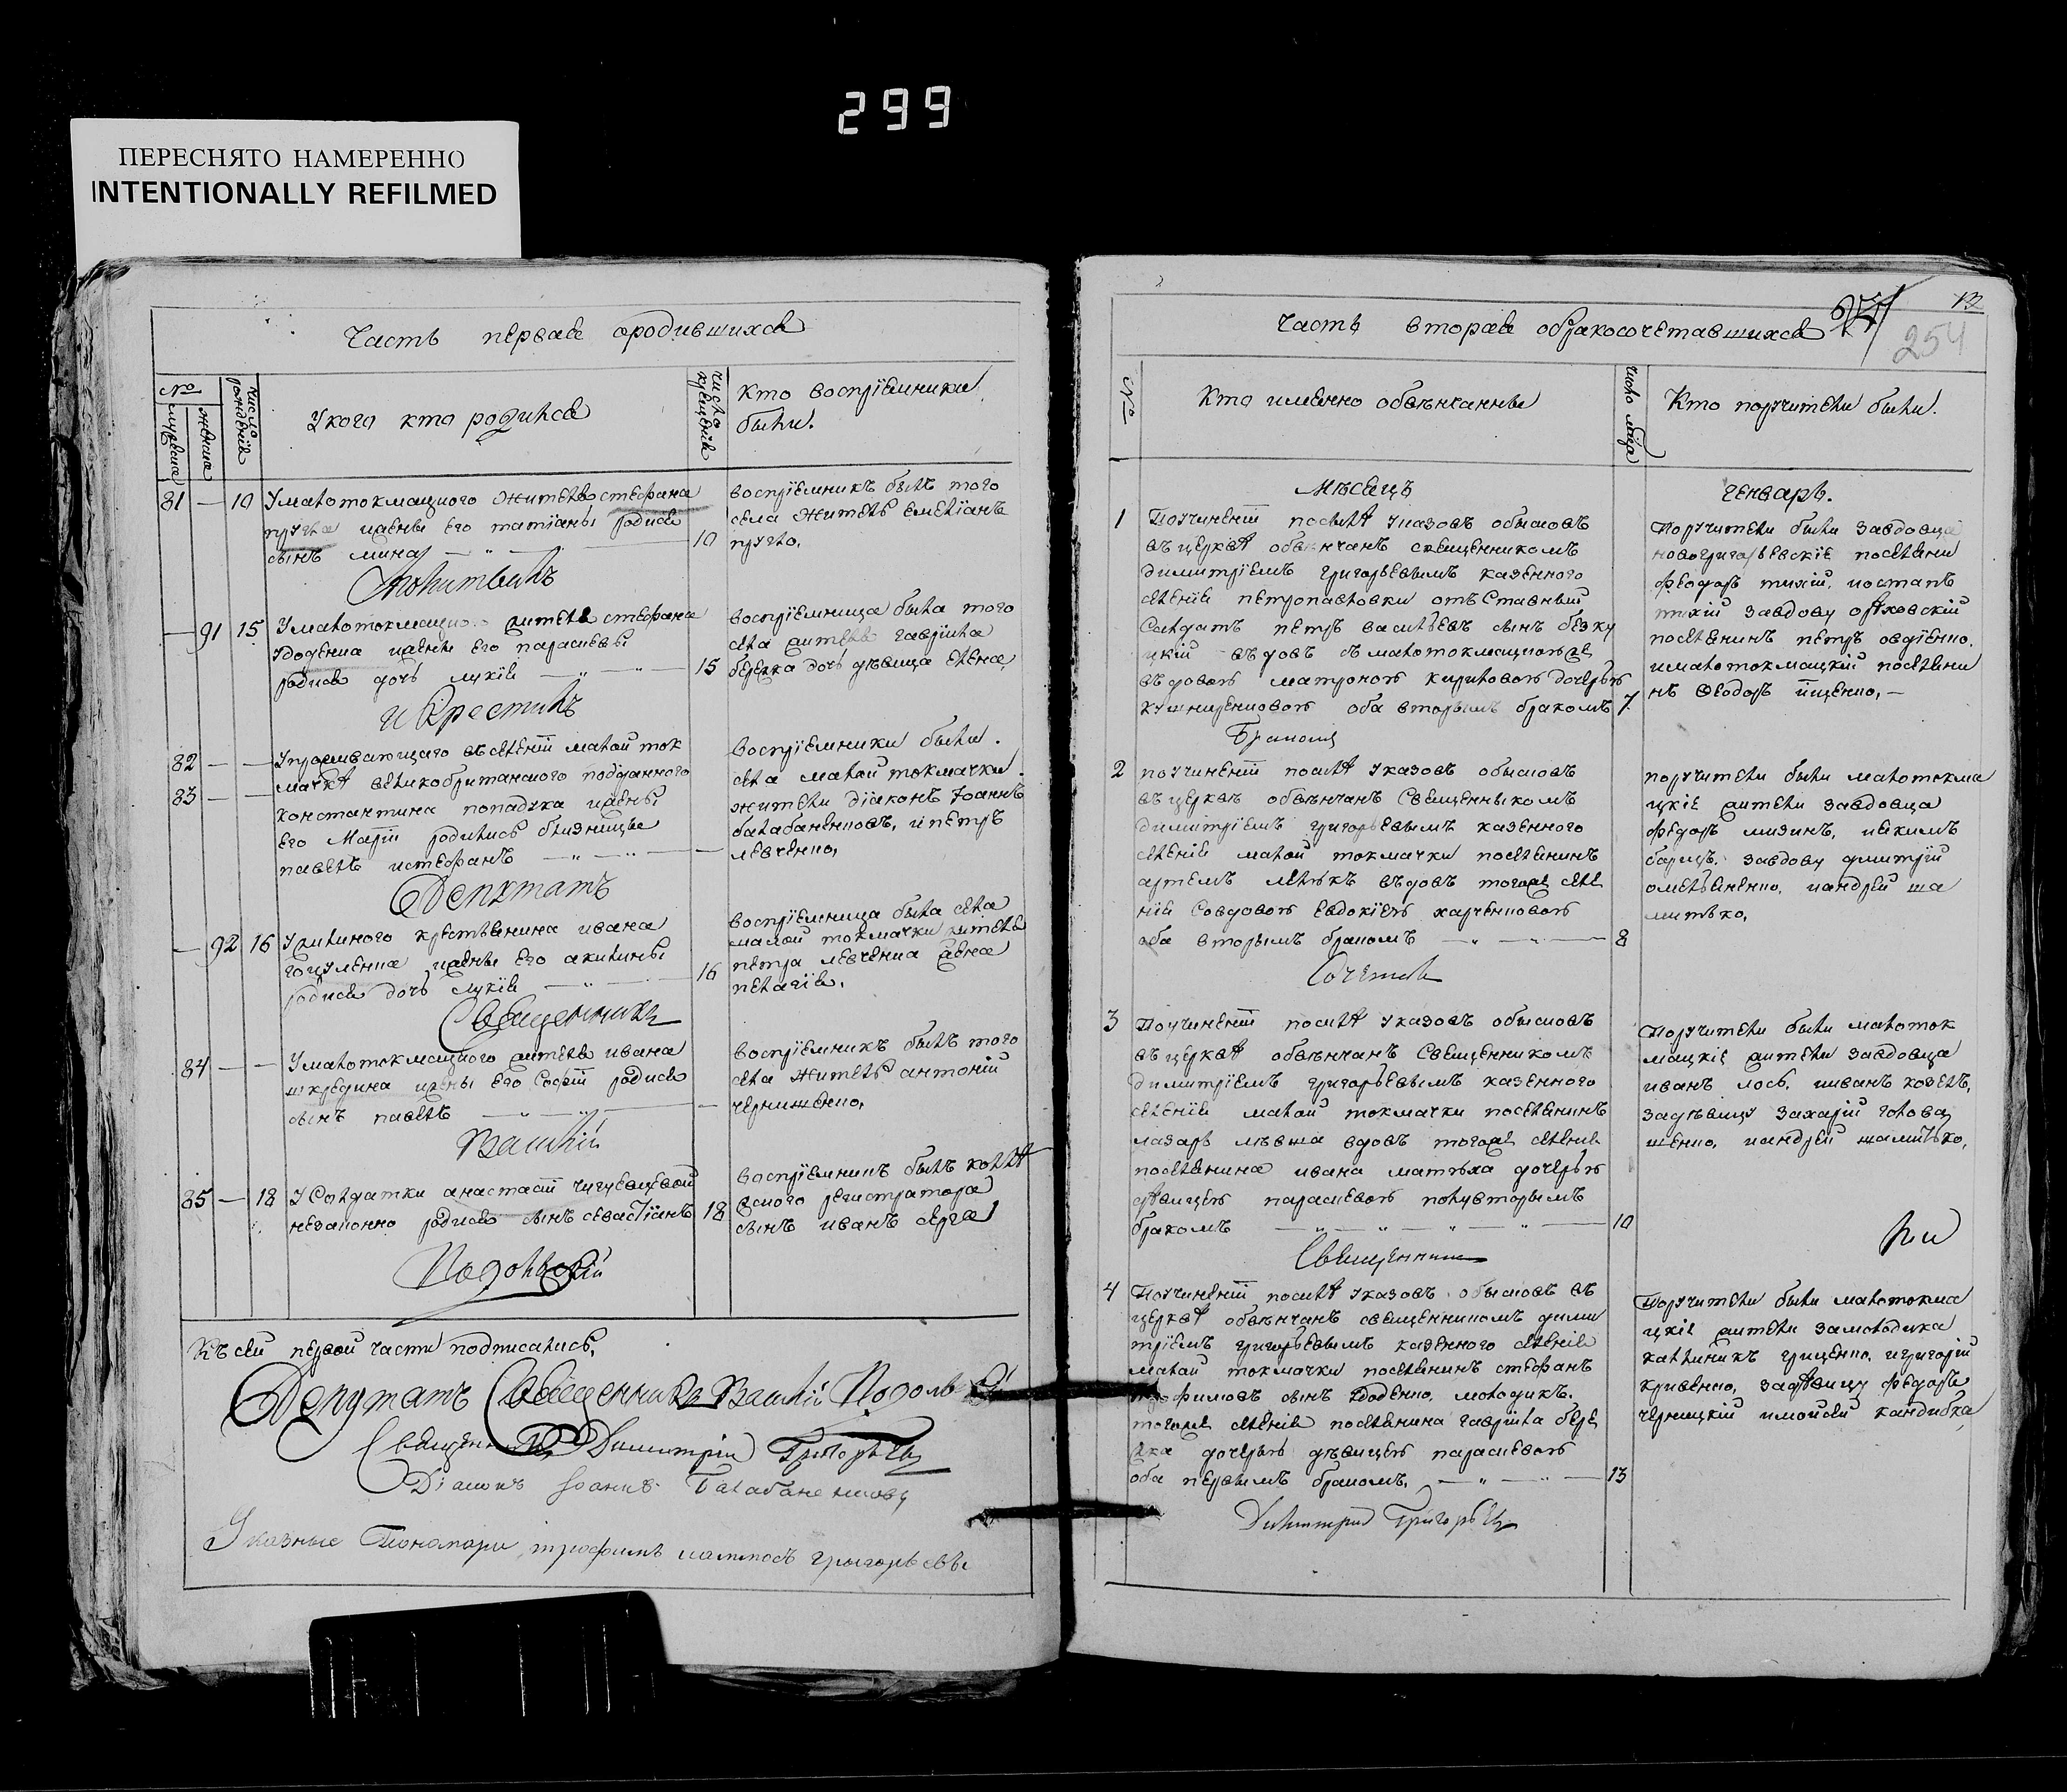 299
ПЕРЕСНЯТО НАМЕРЕННО
INTENTIONALLY REFILMED
Часть первая ородившихся
№
мужеска
женска
число рождения
Укого кто родился
число крещения
Кто воспріемники
были.
81 — 10 Умалотокмацкого жителя стефана
пругла жены его татіаны родися
сынъ мина — „ — 10
воспріемникъ былъ того
села житель емеліанъ
пругло.
Молитвилъ
— 91 15 Умалотокмацкого жителя стефана
удоденка жены его параскевы
родися дочь лукія — „ — „ — 15
воспріемница была того
села жителя гавріила
бережка дочь дѣвица елена
и Крестилъ
82 — — Упроживающаго въ селеніи малой ток
83 — — мачкѣ великобританскаго подданного
константина попадука жены
его Маріи родились близницы
павелъ истефанъ — „ — „ — —
воспріемники были.
села малой токмачки.
жители діаконъ Іоаннъ
балабаненковъ, ипетръ
левченко,
Депутатъ
— 92 16 ивана
жены его акилины
родися дочь лукія — „ — 16
воспріемница была села
малой токмачки жителя
петра левченка жена
пелагія.
Священникъ
84 — — Умалотокмацкого жителя ивана
шкредина жены его Софіи родися
сынъ павелъ — „ — „ — —
воспріемникъ былъ того
села житель антоній
чернишенко,
Василій
85 — 18 УСолдатки анастасіи
незаконно родися сынъ севастіанъ 18
воспріемникъ былъ колле
жского регистратора
сынъ иванъ
Подольскій
Къ сей первой части подписались,
Депутатъ Священникъ Василій Подольскій
Священникъ Димитрій Григорьевъ
Діаконъ Іоаннъ Балабаненковъ
Указные Пономари, трофимъ григорьевы
Часть вторая обракосочетавшихся
12
254
№
Кто именно обвѣнчанны
число мѣсяца
Кто поручители были.
Мѣсяцъ
генварь.
1 Поучиненіи послѣ указовъ обысковъ
въ церквѣ обвѣнчанъ священникомъ
димитріемъ григорьевымъ казенного
селенія петропавловки отъставный
Солдатъ петръ васильевъ сынъ безку
цкій — въдовъ съ малотокмацкою же
въдовою матроною кириловою дочерью
кушниренковою оба вторымъ бракомъ 7
Поручители были завдовца
новогригорьевскіе поселяни
феодоръ тихій, иостапъ
тихій завдову орѣховскій
поселенинъ петръ овдіенко,
ималотокмацкій поселяни
нъ феодоръ ищенко, —
Бракомъ
2 поучиненіи послѣ указовъ обысковъ
въ церквѣ обвѣнчанъ Священныкомъ
димитріемъ григорьевымъ казенного
селенія малой токмачки поселенинъ
артемъ въдовъ тогоже селе
нія Совдовою Евдокіею харченковою
оба вторымъ бракомъ — „ — „ — 8
поручители были малотокма
цкіе жители завдовца
федоръ мизинъ, иякимъ
завдову дмитрій
омельяненко, иандрей ша
митько,
Сочеталъ
3 Поучиненіи послѣ указовъ обысковъ
въ церквѣ обвѣнчанъ Священникомъ
димитріемъ григорьевымъ казенного
селенія малой токмачки поселенинъ
лазарь лѣвша вдовъ тогоже селенія
поселянина ивана дочерью
дѣвицею параскевою полувторымъ
бракомъ — „ — „ — „ — „ — 10
Поручители были малоток
мацкіе жители завдовца
иванъ лось, ииванъ козелъ,
задѣвицу захарій голова
шенко, иандрей шамитько,
Священникъ
4 Поучиненіи послѣ указовъ обысковъ въ
церквѣ обвѣнчанъ священникомъ дими
тріемъ григорьевымъ казенного селенія
малой токмачки поселенинъ стефанъ
трофимовъ сынъ удоденко, молодикъ.
тогоже селенія поселянина гавріила бере
жка дочерью дѣвицею параскевою
оба первымъ бракомъ. — „ — „ — 13
Поручители были малотокма
цкіе жители замолодика
каллиникъ гриценко, игригорій
кривенко, задѣвицу федоръ
черницкій имойсей кандибка,
Димитрій Григорьевъ